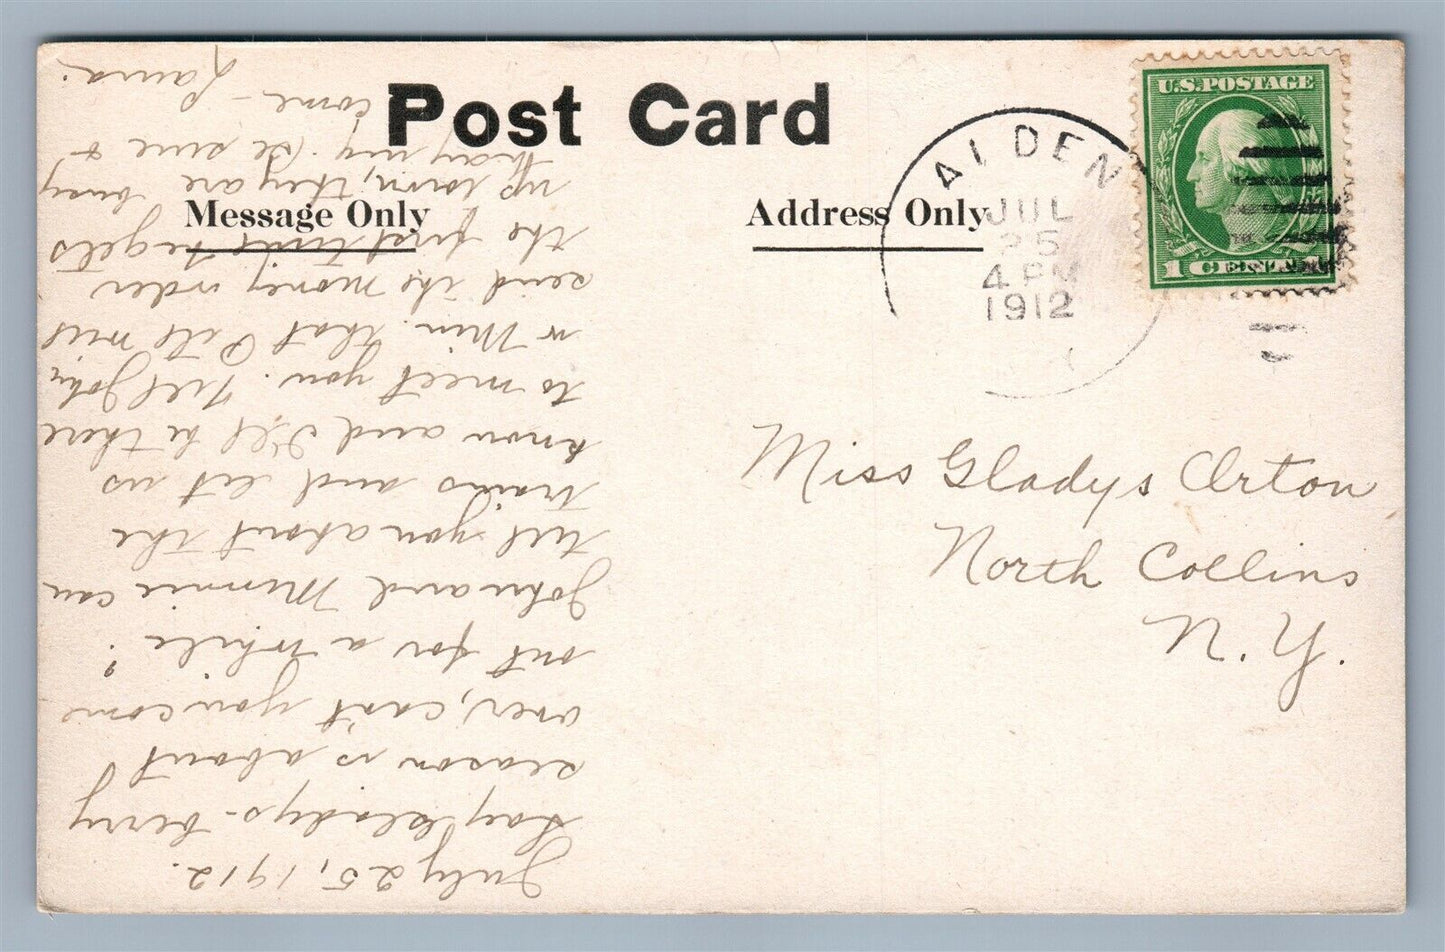 Post Card
Message Only
Address Only
ALDEN
JUL
25
4 PM
1912
U.S. POSTAGE
1 CENT 1
Miss Gladys Orton
North Collins
N. Y.
July 25, 1912.
Say Gladys - berry
season is about
over, can't you come
out for a while?
John and Minnie can
tell you about the
trains and let us
know and I'll be there
to meet you. Tell John
or Min. that I will
send the money order
the first time he gets
up town, they are busy
haying. Be sure &
come - Laura.